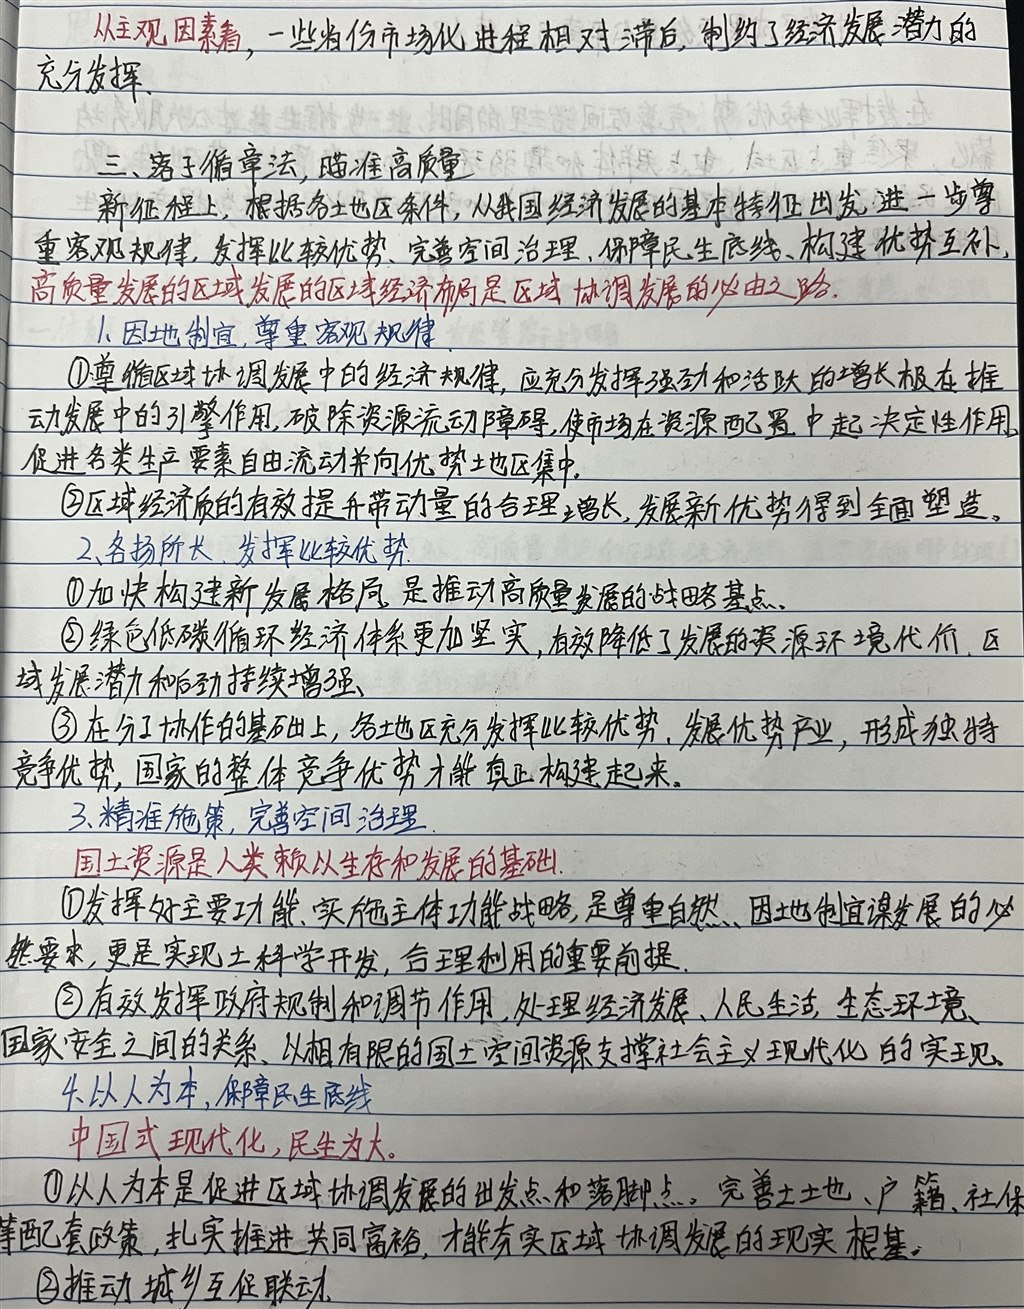 从主观因素看，一些省份市场化进程相对滞后，制约了经济发展潜力的
充分发挥.
三、落子循章法，瞄准高质量
新征程上，根据各地区条件，从我国经济发展的基本特征出发，进一步尊
重客观规律，发挥比较优势、完善空间治理、保障民生底线、构建优势互补，
高质量发展的区域发展的区域经济布局是区域协调发展的必由之路.
1. 因地制宜，尊重客观规律
①尊循区域协调发展中的经济规律，应充分发挥强劲和活跃的增长极在推
动发展中的引擎作用，破除资源流动障碍，使市场在资源配置中起决定性作用，
促进各类生产要素自由流动并向优势地区集中.
②区域经济质的有效提升带动量的合理增长，发展新优势得到全面塑造。
2、各扬所长，发挥比较优势.
①加快构建新发展格局，是推动高质量发展的战略基点、
②绿色低碳循环经济体系更加坚实，有效降低了发展的资源环境代价，区
域发展潜力和后劲持续增强、
③在分工协作的基础上，各地区充分发挥比较优势，发展优势产业，形成独特
竞争优势，国家的整体竞争优势才能真正构建起来。
3、精准施策，完善空间治理.
国土资源是人类赖以生存和发展的基础.
①发挥好主要功能、实施主体功能战略，是尊重自然、因地制宜谋发展的必
然要求，更是实现土科学开发，合理利用的重要前提.
②有效发挥政府规制和调节作用，处理经济发展、人民生活，生态环境、
国家安全之间的关系、以相有限的国土空间资源支撑社会主义现代化的实现、
4. 以人为本，保障民生底线
中国式现代化，民生为大。
①以人为本是促进区域协调发展的出发点和落脚点。完善土地、户籍、社保
等配套政策，扎实推进共同富裕，才能夯实区域协调发展的现实根基。
②推动城乡互促联动.